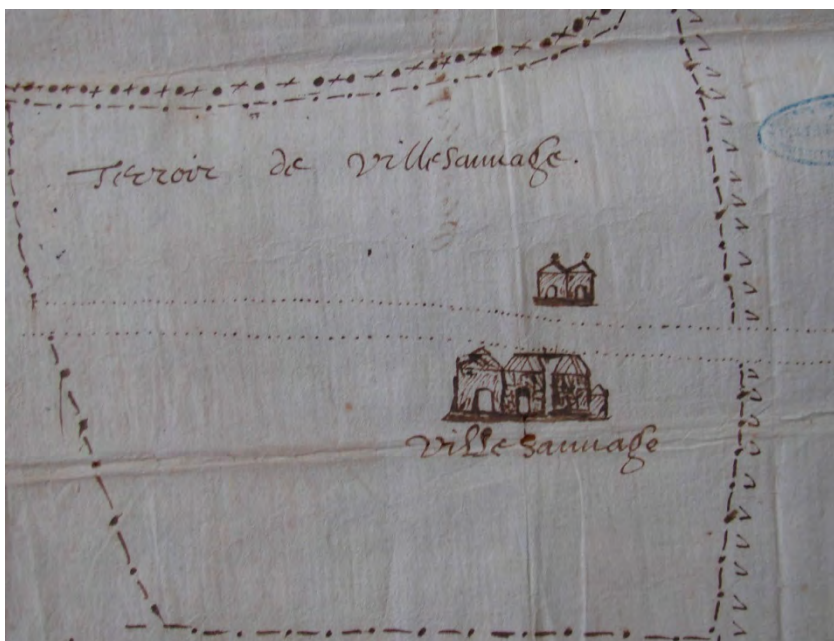 Terroir de villesauuage.
ville sauuage